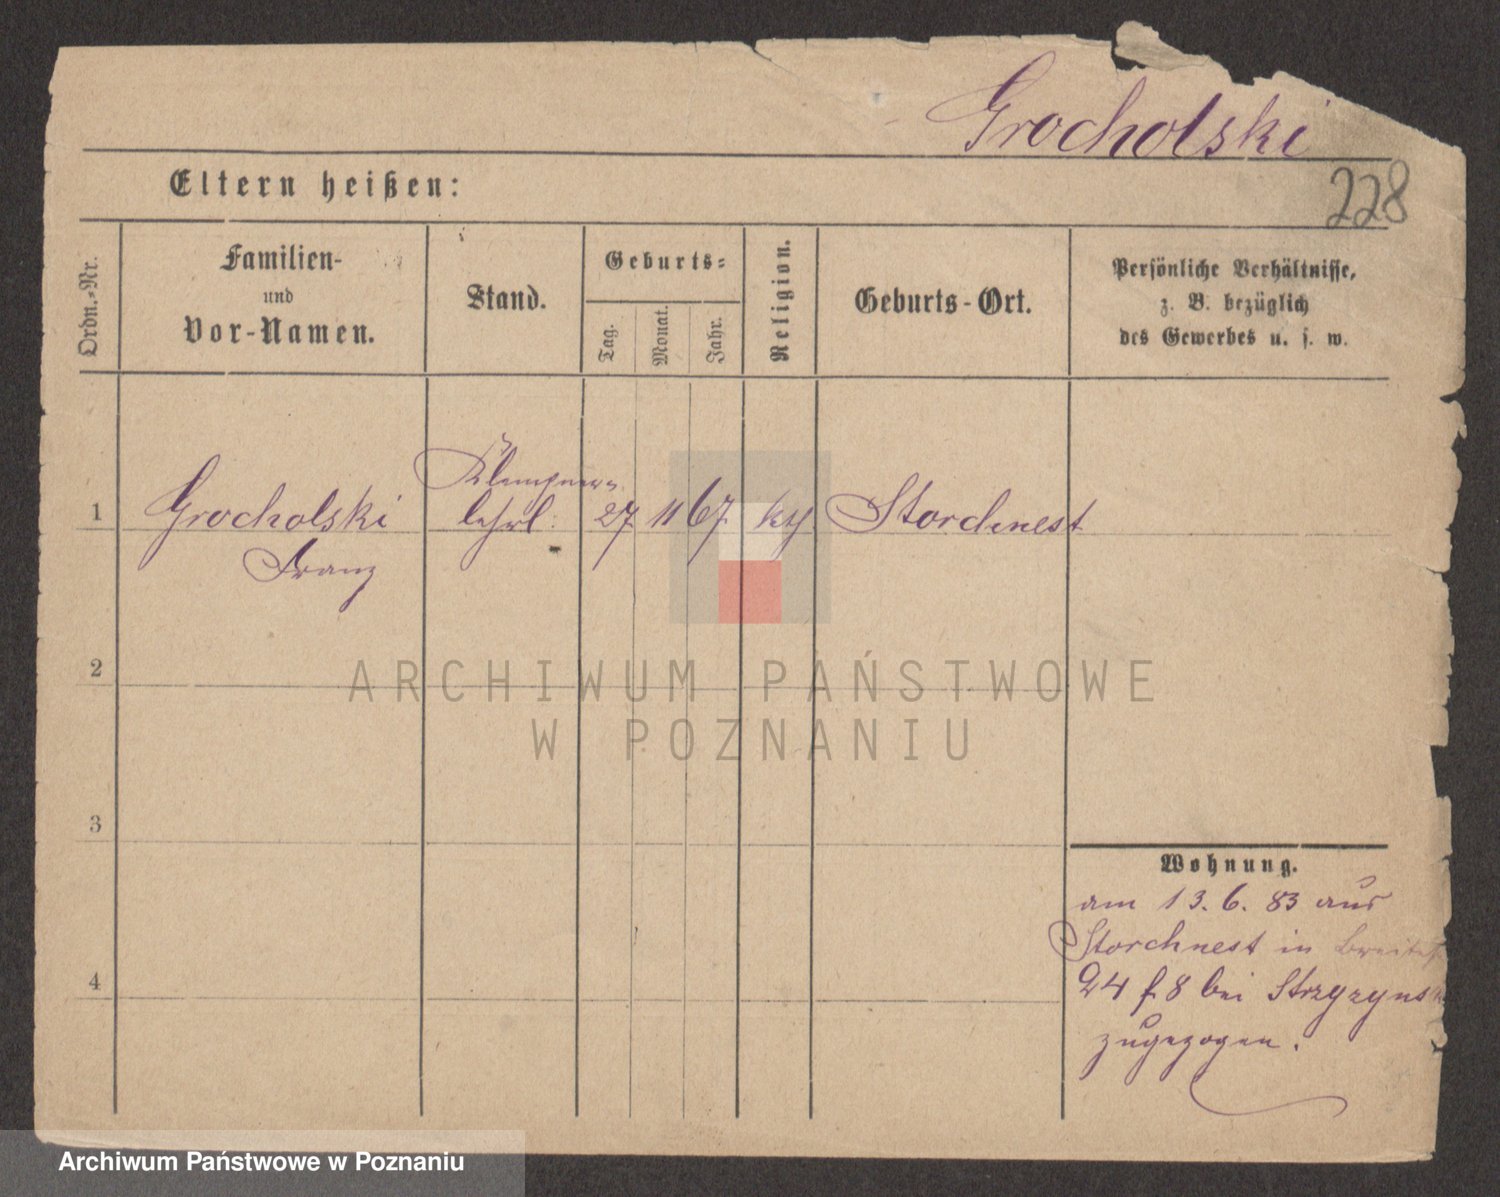 Grocholski
228
Eltern heißen:
Ordn.=Nr.
Familien-
und
Vor-Namen.
Stand.
Geburts=
Tag.
Monat.
Jahr.
Religion.
Geburts-Ort.
Persönliche Verhältnisse,
z. B. bezüglich
des Gewerbes u. s. w.
1
Grocholski
Franz
Klempner=
lehrl.
27
11
67
Storchnest
2
3
4
Wohnung.
am 13. 6. 83 aus
Storchnest in
24 f. 8 bei
zugezogen.
ARCHIWUM PAŃSTWOWE
W POZNANIU
Archiwum Państwowe w Poznaniu